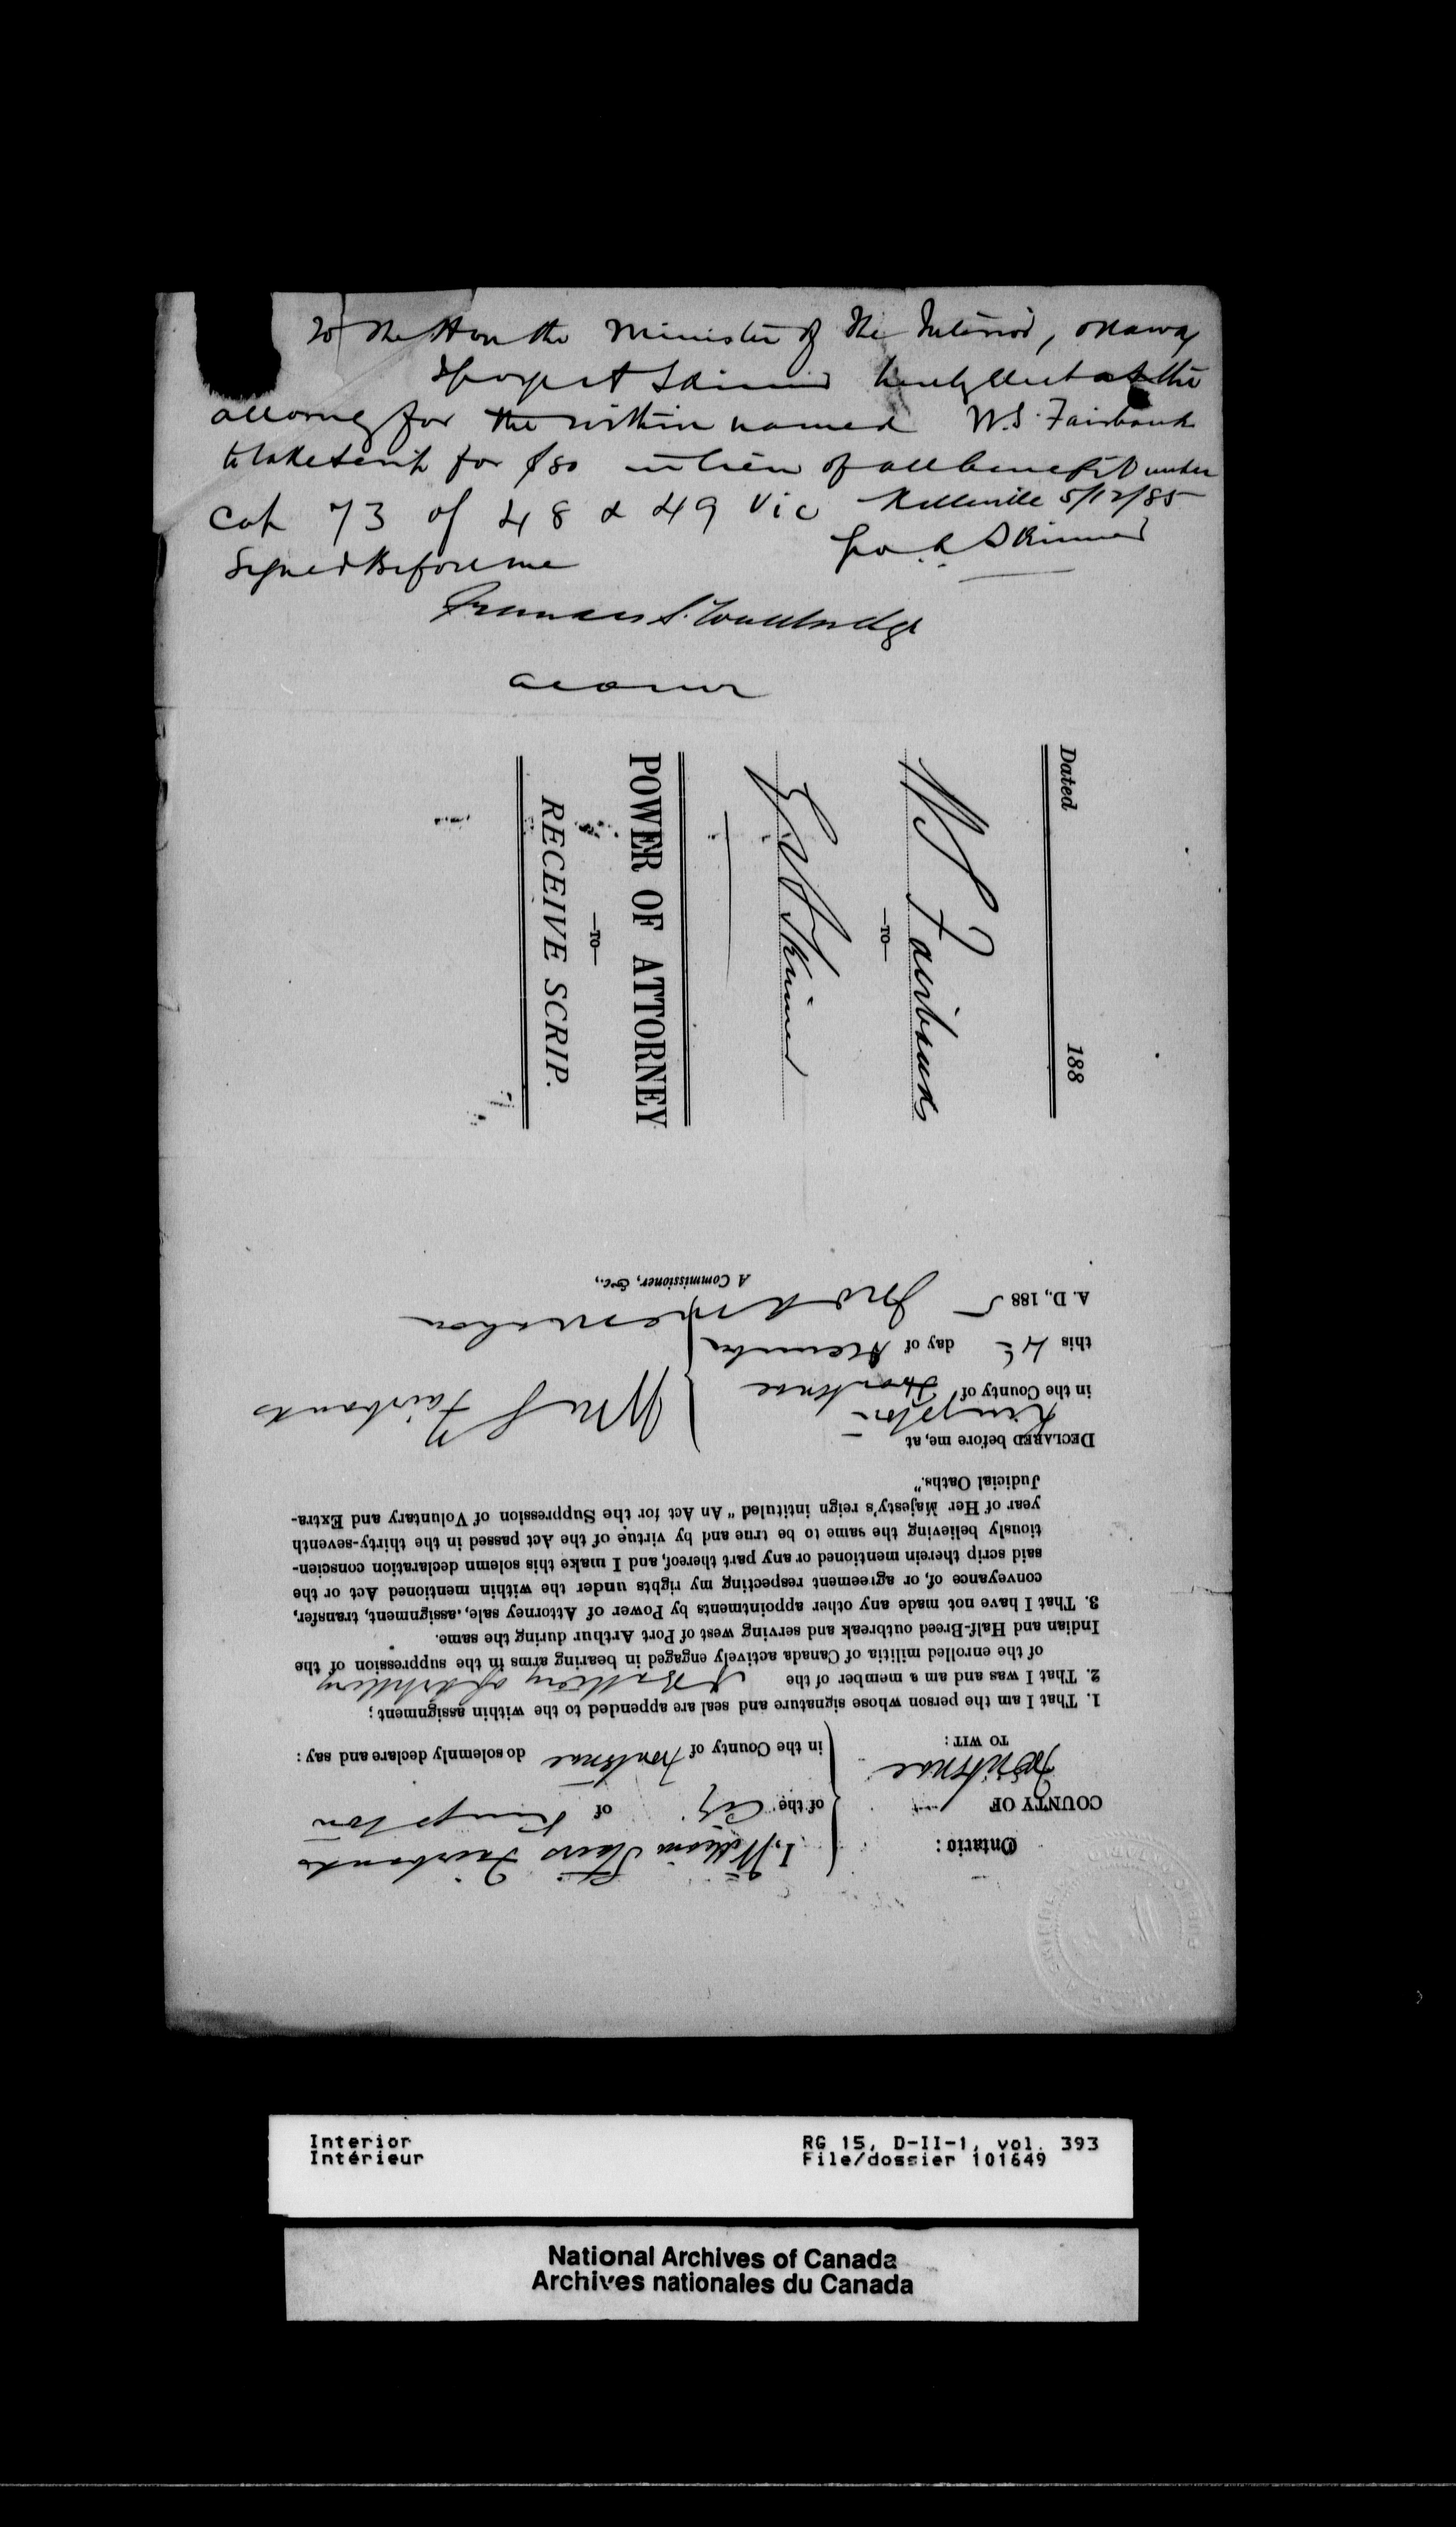 To the Hon the Minister of the Interior, Ottawa
I George A Skinner hereby elect as the
attorney for the within named W.S. Fairbanks
to take scrip for $80 in lieu of all benefit under
Cap 73 of 48 & 49 Vic Belleville 5/12/85
Signed Before me Geo. A. Skinner
Dated 188
W S Fairbanks
—TO—
G A Skinner
POWER OF ATTORNEY
—TO—
RECEIVE SCRIP.
Ontario:
COUNTY OF
Frontenac
TO WIT:
I, William Stairs Fairbanks
of the City of Kingston
in the County of Frontenac do solemnly declare and say:
1. That I am the person whose signature and seal are appended to the within assignment;
2. That I was and am a member of the A Battery of Artillery
of the enrolled militia of Canada actively engaged in bearing arms in the suppression of the
Indian and Half-Breed outbreak and serving west of Port Arthur during the same.
3. That I have not made any other appointments by Power of Attorney sale, assignment, transfer,
conveyance of, or agreement respecting my rights under the within mentioned Act or the
said scrip therein mentioned or any part thereof, and I make this solemn declaration conscien-
tiously believing the same to be true and by virtue of the Act passed in the thirty-seventh
year of Her Majesty's reign intituled "An Act for the Suppression of Voluntary and Extra-
Judicial Oaths."
DECLARED before me, at
Kingston
in the County of Frontenac
this 4th day of December
A. D., 1885
Wm S Fairbanks
A Commissioner, &c.,
Interior
Intérieur
RG 15, D-II-1, vol. 393
File/dossier 101649
National Archives of Canada
Archives nationales du Canada